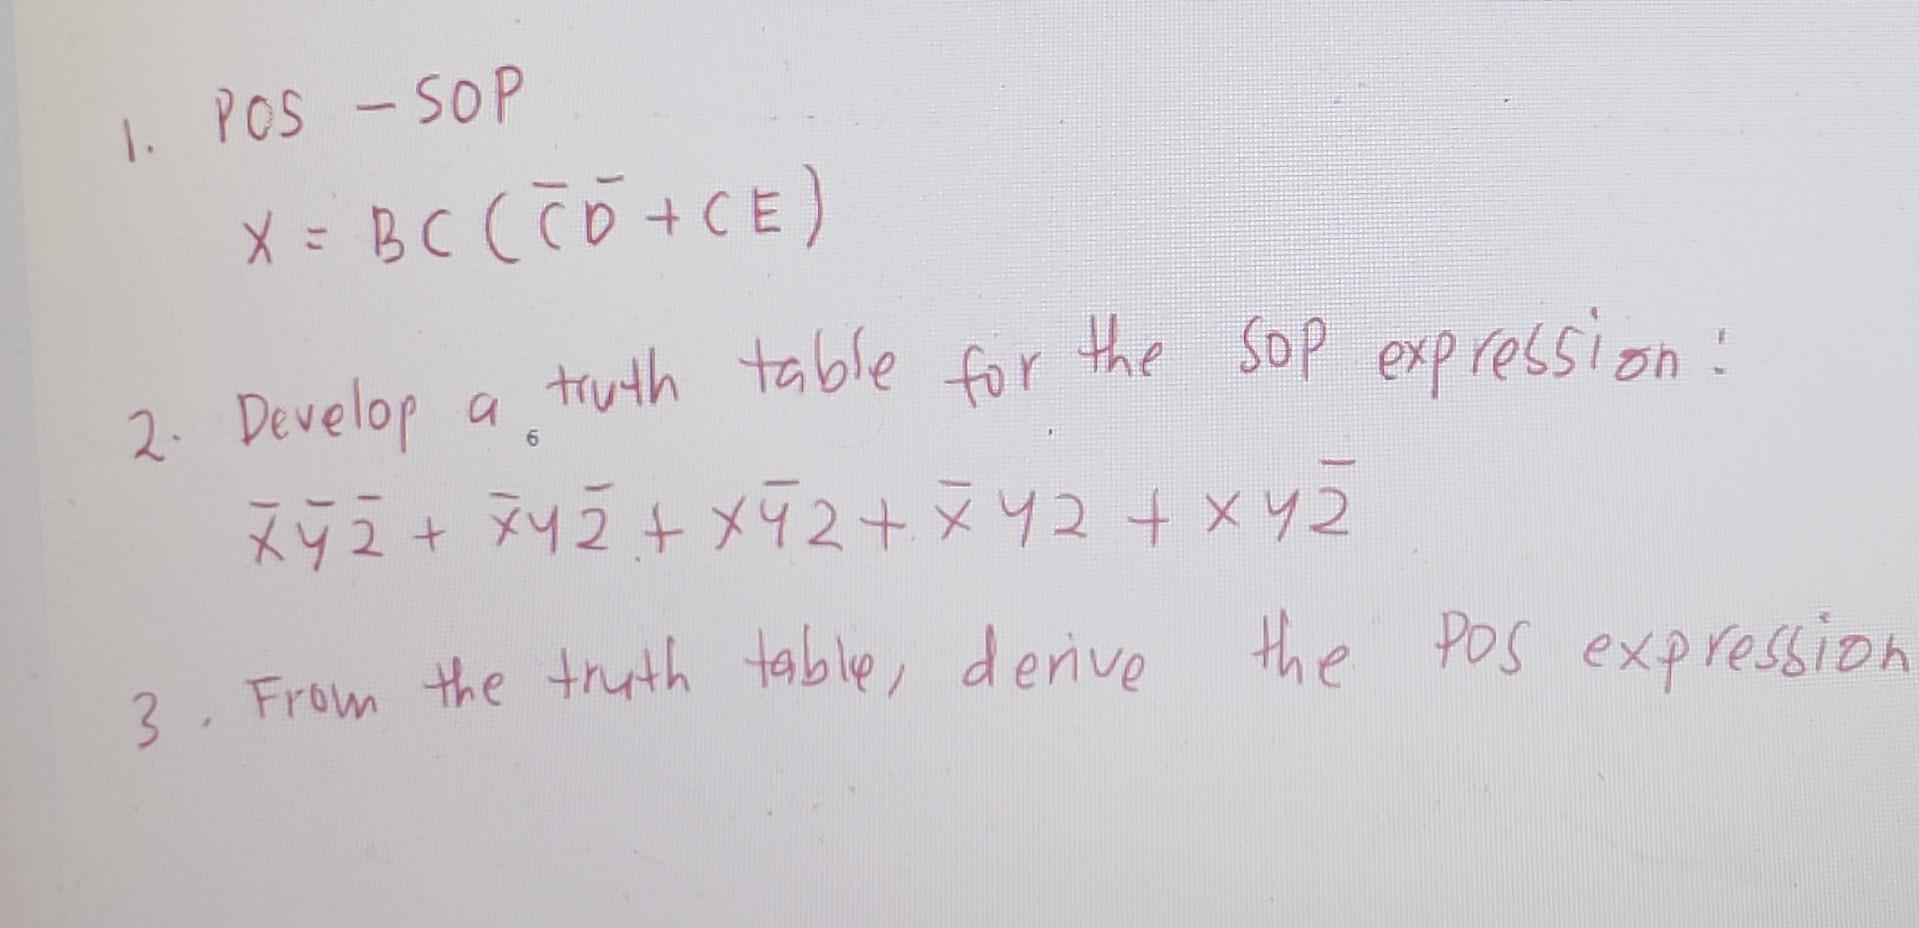 1. POS - SOP
X = BC (C̅ D̅ + CE)
2. Develop a truth table for the SOP expression:
6
x̅ y̅ z̅ + x̅ y z̅ + x y̅ z + x̅ y z + x y z̅
3. From the truth table, derive the POS expression